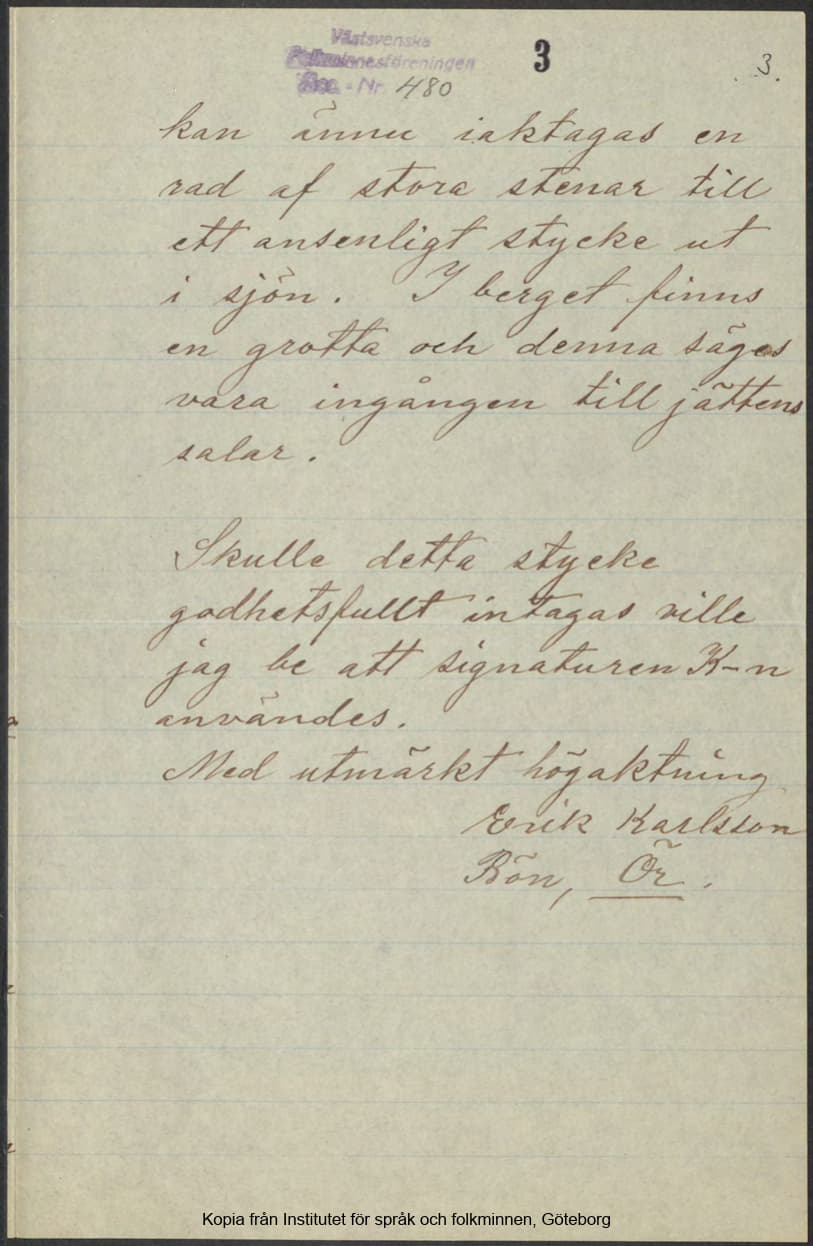 Västsvenska
Folkminnesföreningen
Acc. - Nr. 480
3
3.
kan ännu iakttagas en
rad af stora stenar till
ett ansenligt stycke ut
i sjön. I berget finns
en grotta och denna säges
vara ingången till jättens
salar.
Skulle detta stycke
godhetsfullt intagas ville
jag be att signaturen K-n
användes.
Med utmärkt högaktning
Erik Karlsson
Bön, Ör.
Kopia från Institutet för språk och folkminnen, Göteborg